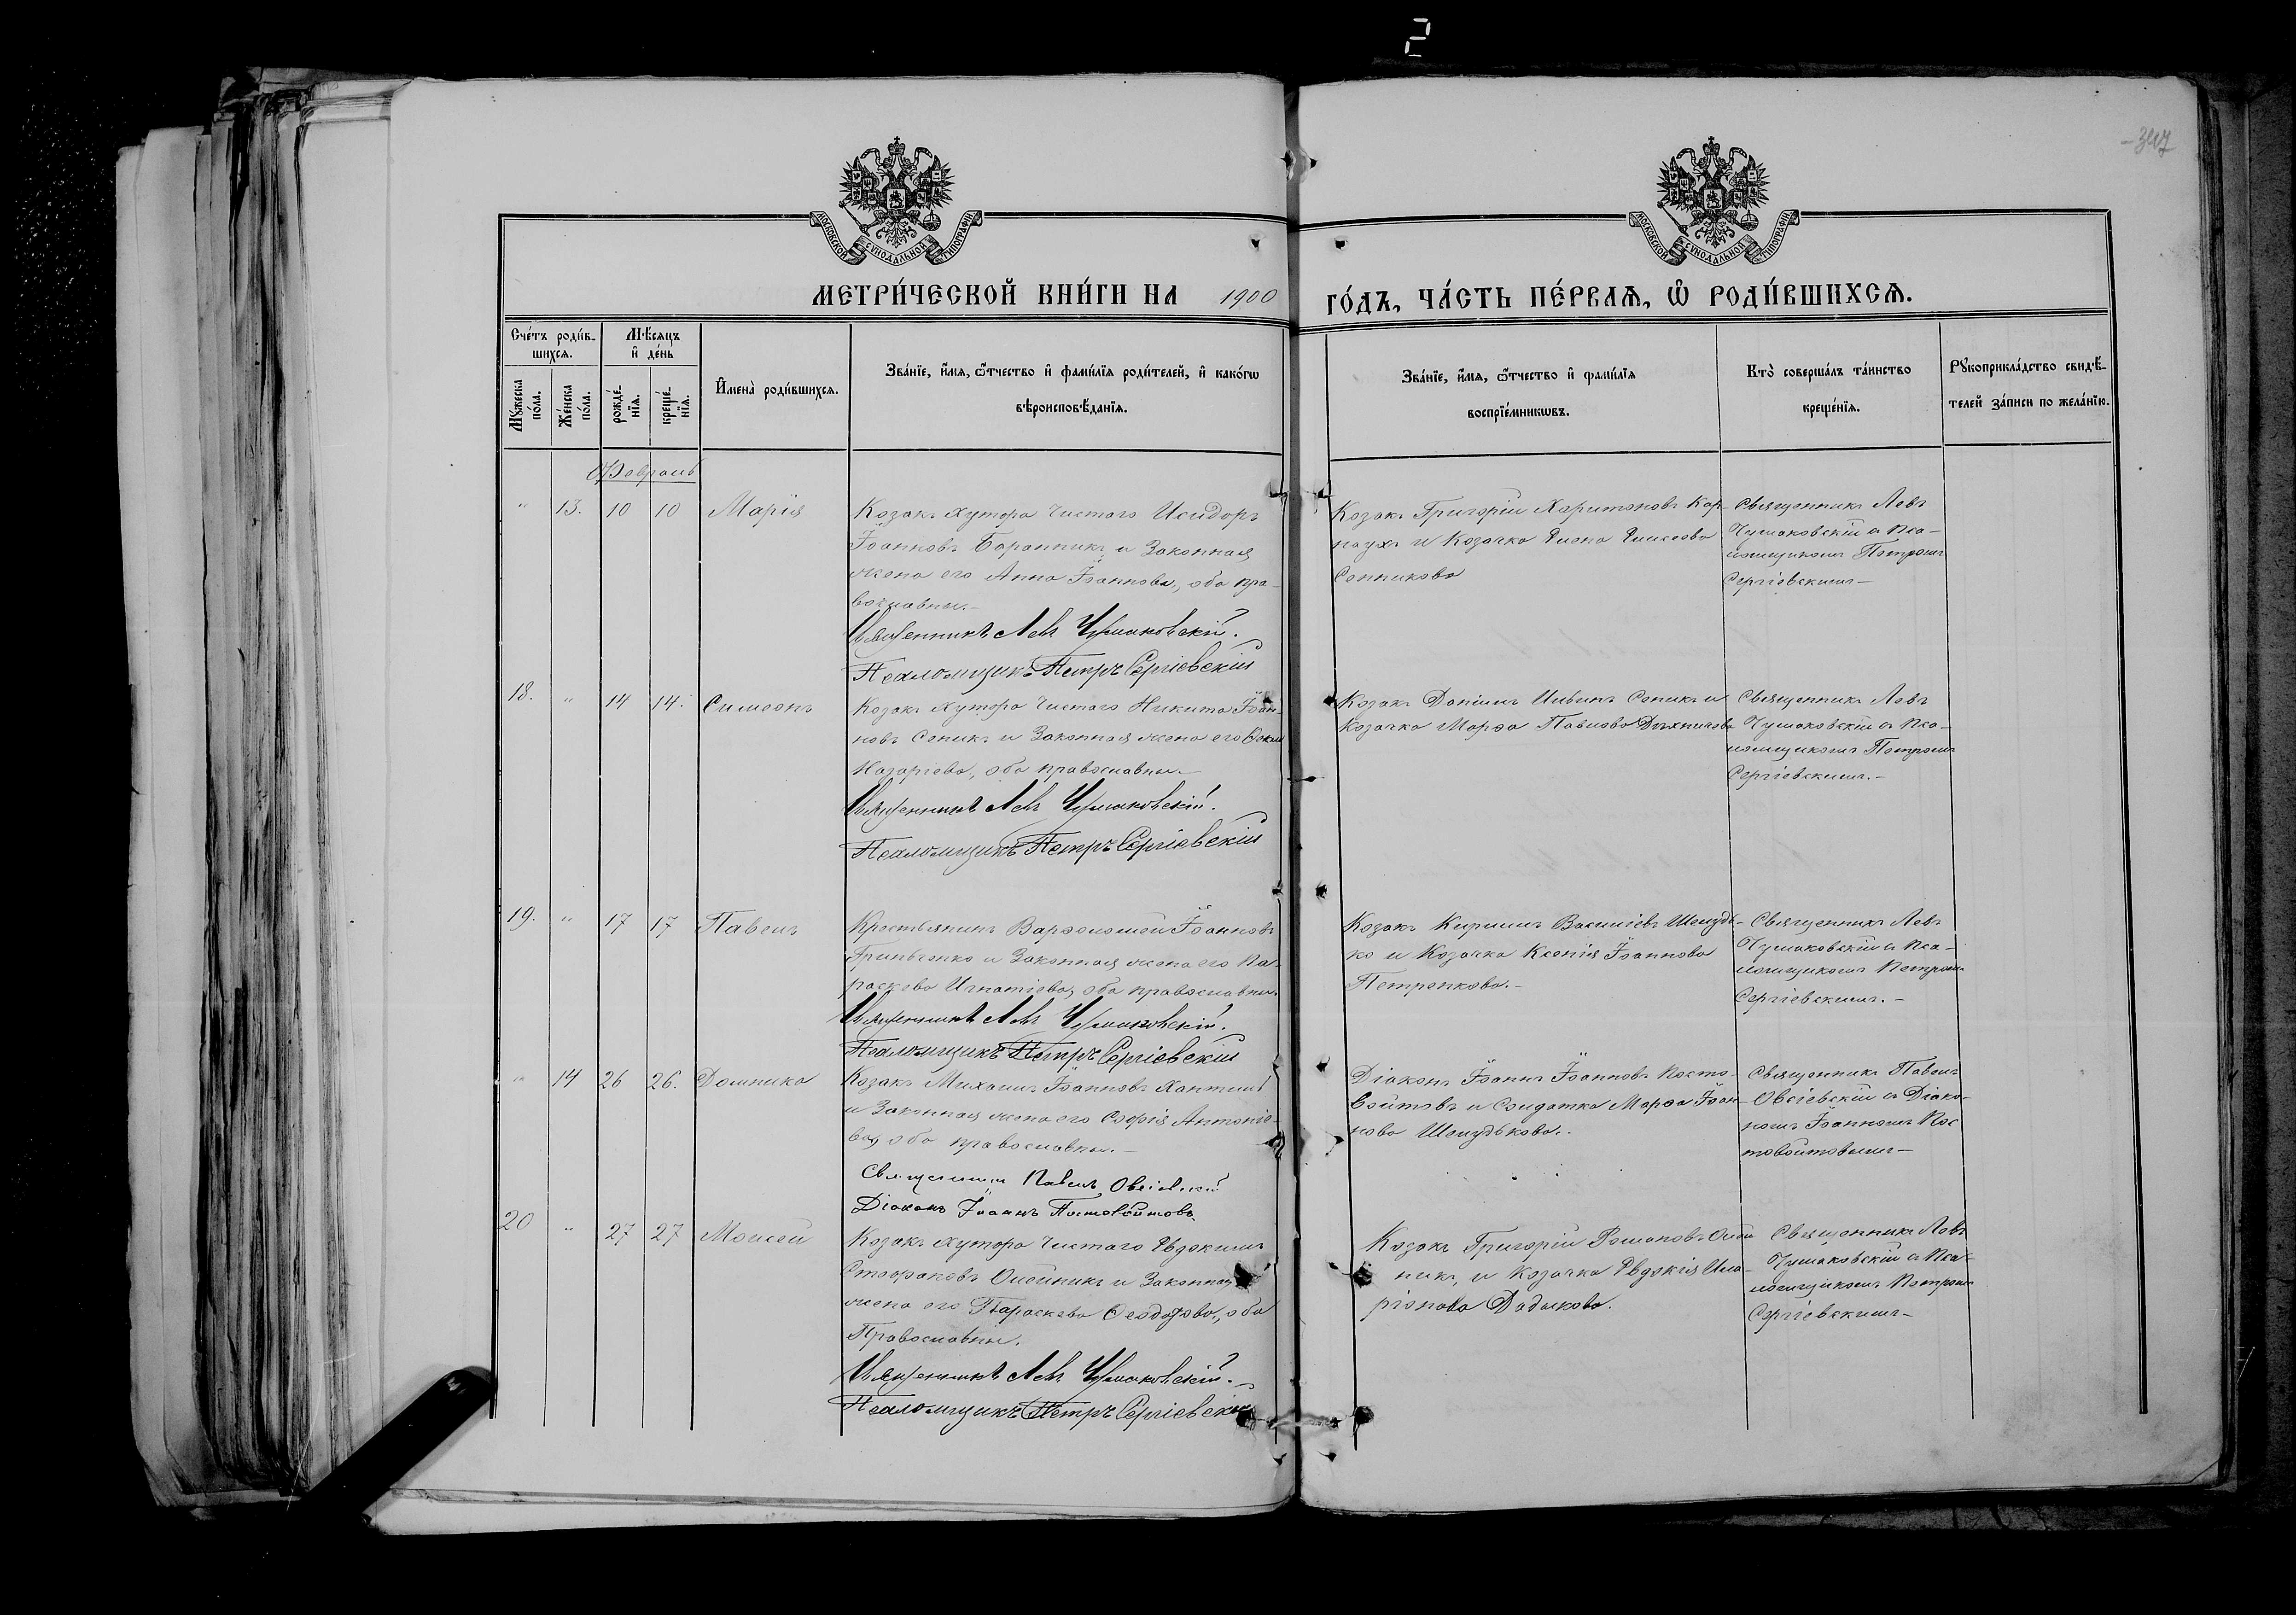 2
347
МОСКОВСКОЙ СѴНОДАЛЬНОЙ ТИПОГРАФІИ
МОСКОВСКОЙ СѴНОДАЛЬНОЙ ТИПОГРАФІИ
МЕТРИ́ЧЕСКОЙ КНИ́ГИ НА 1900 ГО́ДЪ, ЧА́СТЬ ПЕ́РВАѦ, Ѡ҆ РОДИ́ВШИХСѦ.
Сче́тъ роди́в-
шихсѧ.
Мꙋжеска по́ла.
Же́нска по́ла.
Мѣсѧцъ
и҆ де́нь
рожде́-
нїѧ.
креще́-
нїѧ.
И҆мена̀ роди́вшихсѧ.
Зва́нїе, и҆́мѧ, ѻ҆́тчество и҆ фами́лїѧ роди́телей, и҆ како́гѡ
вѣроисповѣ́данїѧ.
Зва́нїе, и҆́мѧ, ѻ҆́тчество и҆ фами́лїѧ
воспрїе́мникѡвъ.
Кто̀ соверша́лъ та́инство
креще́нїѧ.
Рꙋкоприкла́дство свидѣ́-
телей за́писи по жела́нїю.
Февраль
" 13. 10 10 Марія
Козакъ хутора Чистаго Исидоръ
Іоанновъ Баранникъ и законная
жена его Анна Іоаннова, оба пра-
вославны.-
Священникъ Левъ Чумаковскій.
Псаломщикъ Петръ Сергіевскій
Козакъ Григорій Харитоновъ Кар-
наухъ и Козачка Елена Елисеева
Сенникова
Священникъ Левъ
Чумаковскій съ Пса-
ломщикомъ Петромъ
Сергіевскимъ-
18. " 14 14. Симеонъ
Козакъ хутора Чистаго Никита Іоан-
новъ Сѣникъ и законная жена его
Назаріева, оба православны.-
Священникъ Левъ Чумаковскій.
Псаломщикъ Петръ Сергіевскій
Козакъ Даніилъ Ильинъ Сеникъ и
Козачка Марѳа Павлова
Священникъ Левъ
Чумаковскій съ Пса-
ломщикомъ Петромъ
Сергіевскимъ.-
19. " 17 17 Павелъ
Крестьянинъ Варѳоломей Іоанновъ
Гриньченко и законная жена его Па-
раскева Игнатіева, оба православны.
Священникъ Левъ Чумаковскій.
Псаломщикъ Петръ Сергіевскій
Козакъ Кириллъ Василіевъ Шелудь-
ко и Козачка Ксенія Іоаннова
Петренкова.-
Священникъ Левъ
Чумаковскій съ Пса-
ломщикомъ Петромъ
Сергіевскимъ.-
" 14 26 26. Домника
Козакъ Михаилъ Іоанновъ
и законная жена его Софія Антоніе-
ва, оба православны.-
Священникъ Павелъ Овсіевскій
Діаконъ Іоаннъ Постовойтовъ
Діаконъ Іоаннъ Іоанновъ Посто-
войтовъ и Солдатка Марѳа Іоан-
нова Шелудькова.-
Священникъ Павелъ
Овсіевскій съ Діако-
номъ Іоанномъ Пос
товойтовымъ-
20 " 27 27 Моисей
Козакъ хутора Чистаго Евдокимъ
Стефановъ Олейникъ и законная
жена его Параскева Ѳеодорова, оба
Православны.
Священникъ Левъ Чумаковскій.-
Псаломщикъ Петръ Сергіевскій
Козакъ Григорій Романовъ Олей
никъ, и Козачка Евдокія Ила-
ріонова Дадыкова.
Священникъ Левъ
Чумаковскій съ Пса-
ломщикомъ Петромъ
Сергіевскимъ-